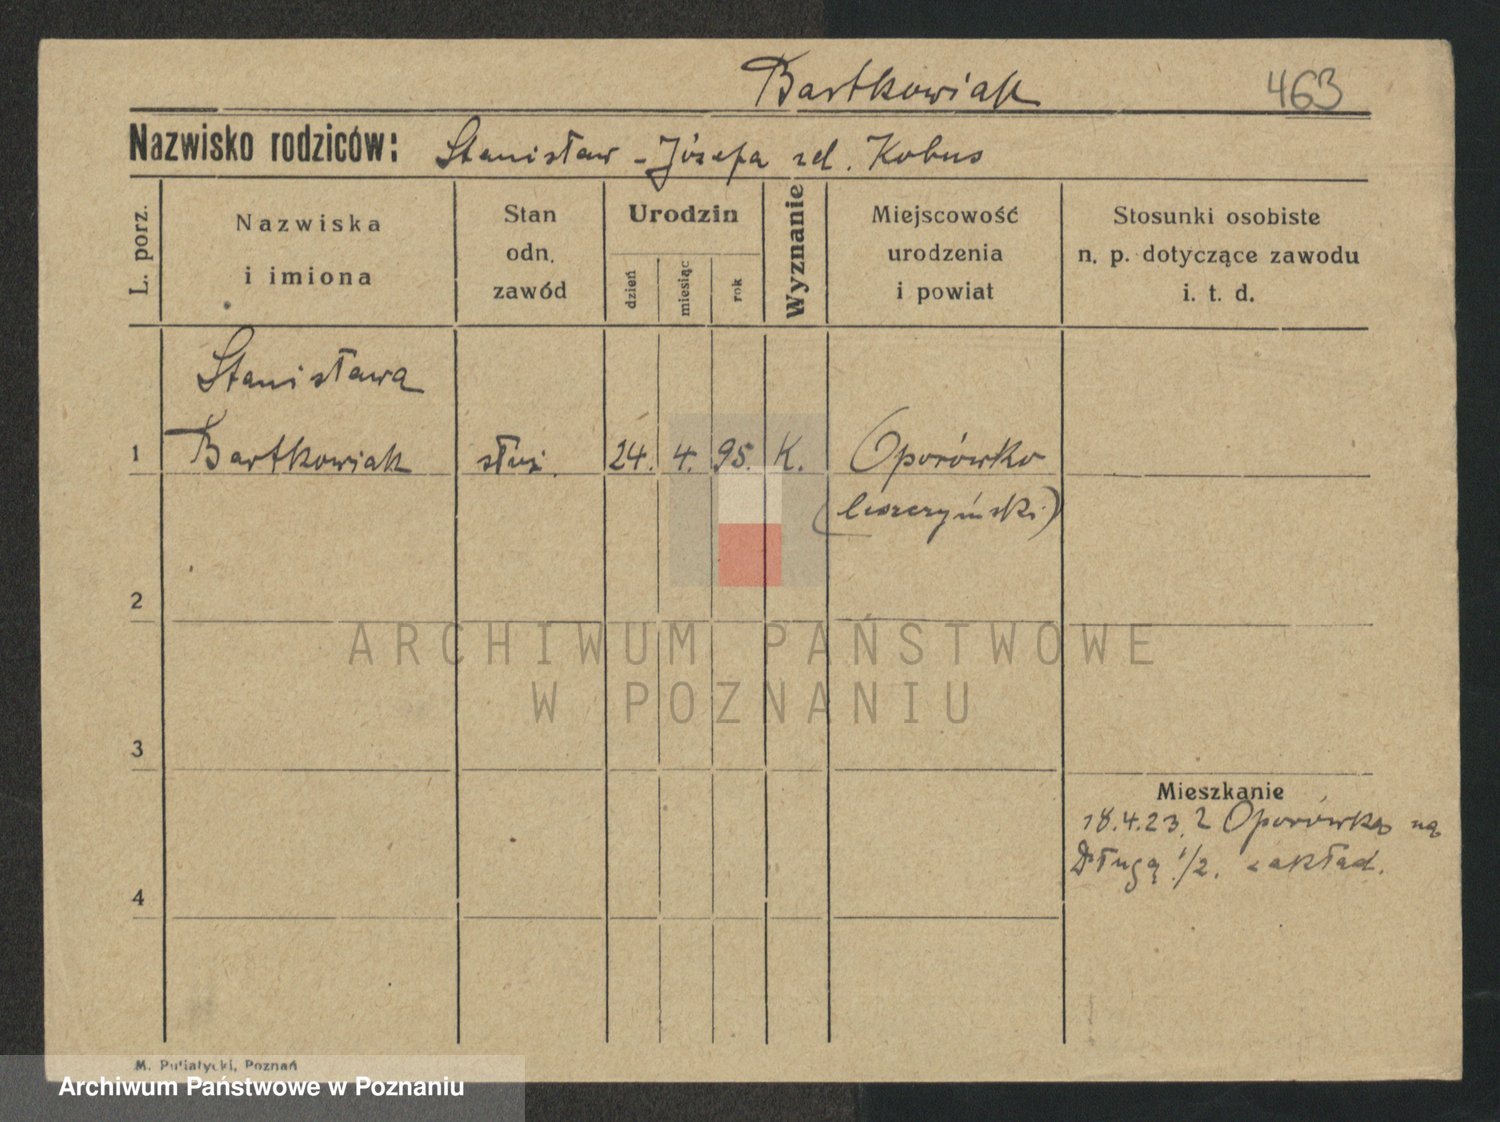 Bartkowiak 463
Nazwisko rodziców: Stanisław - Józefa zd. Kobus
L. porz.
Nazwiska
i imiona
Stan
odn.
zawód
Urodzin
dzień
miesiąc
rok
Wyznanie
Miejscowość
urodzenia
i powiat
Stosunki osobiste
n. p. dotyczące zawodu
i. t. d.
Stanisława
1 Bartkowiak służ. 24. 4. 95. K. Oporówko
(leszczyński)
2
ARCHIWUM PAŃSTWOWE
W POZNANIU
3
Mieszkanie
18.4.23 z Oporówka na
Długą 1/2. zakład.
4
M. Putiatycki, Poznań
Archiwum Państwowe w Poznaniu